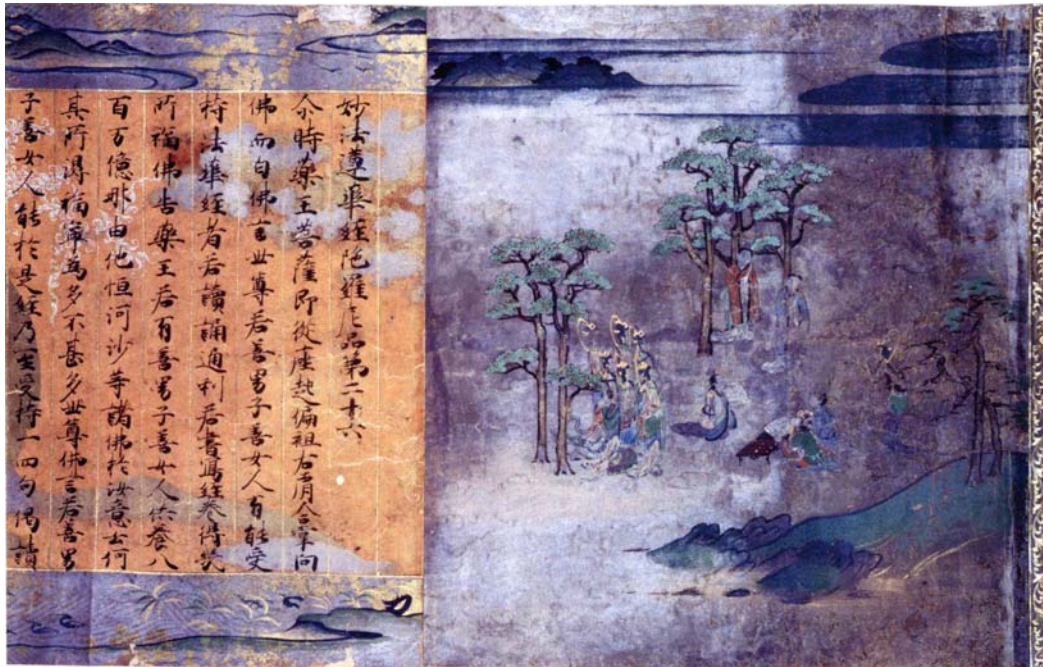 妙法蓮華經陀羅尼品第二十六
尒時藥王菩薩即從座起偏袒右肩合掌向
佛而白佛言世尊若善男子善女人有能受
持法華經者若讀誦通利若書寫經卷得幾
所福佛告藥王若有善男子善女人供養八
百万億那由他恒河沙等諸佛於汝意云何
其所得福寧為多不甚多世尊佛言若善男
子善女人能於是經乃至受持一四句偈讀